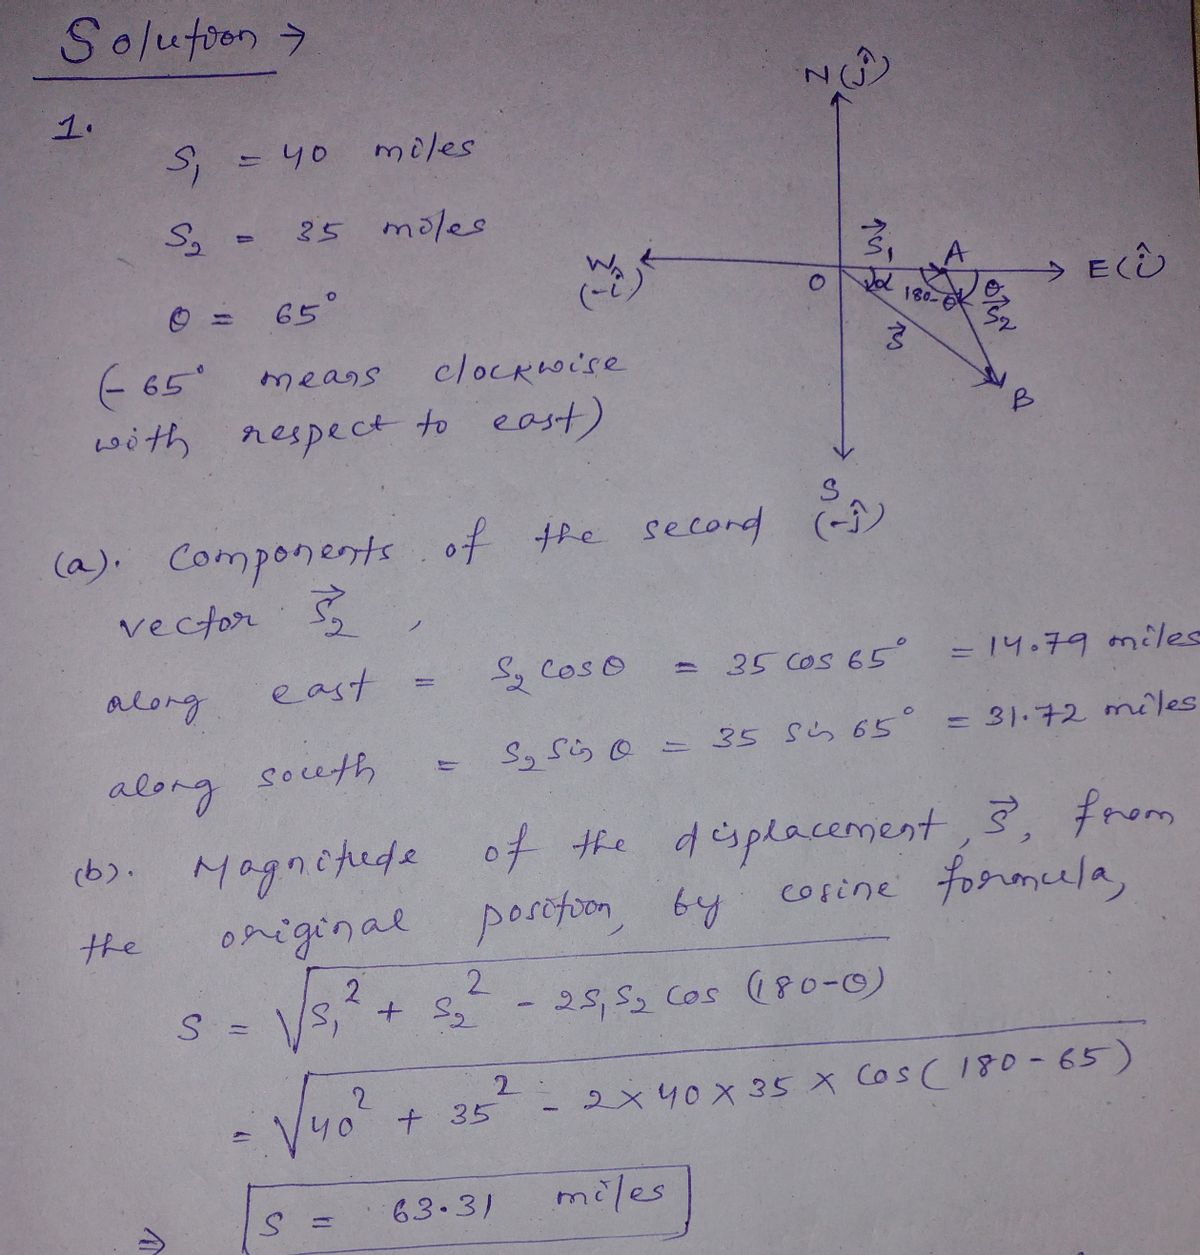 Solution →
1.
S₁ = 40 miles
S₂ = 35 miles
θ = 65°
(-65° means clockwise
with respect to east)
N(ĵ)
W
(-î)
E(î)
S
(-ĵ)
O
S⃗₁
A
α
180-θ
θ
S⃗₂
S⃗
B
(a). Components of the second
vector S⃗₂,
along east = S₂ cosθ = 35 cos 65° = 14.79 miles
along south = S₂ sin θ = 35 sin 65° = 31.72 miles
(b). Magnitude of the displacement, S⃗, from
the original position, by cosine formula,
S = √(S₁² + S₂² - 2S₁S₂ cos (180-θ))
= √(40² + 35² - 2×40×35× cos(180-65))
⇒ S = 63.31 miles